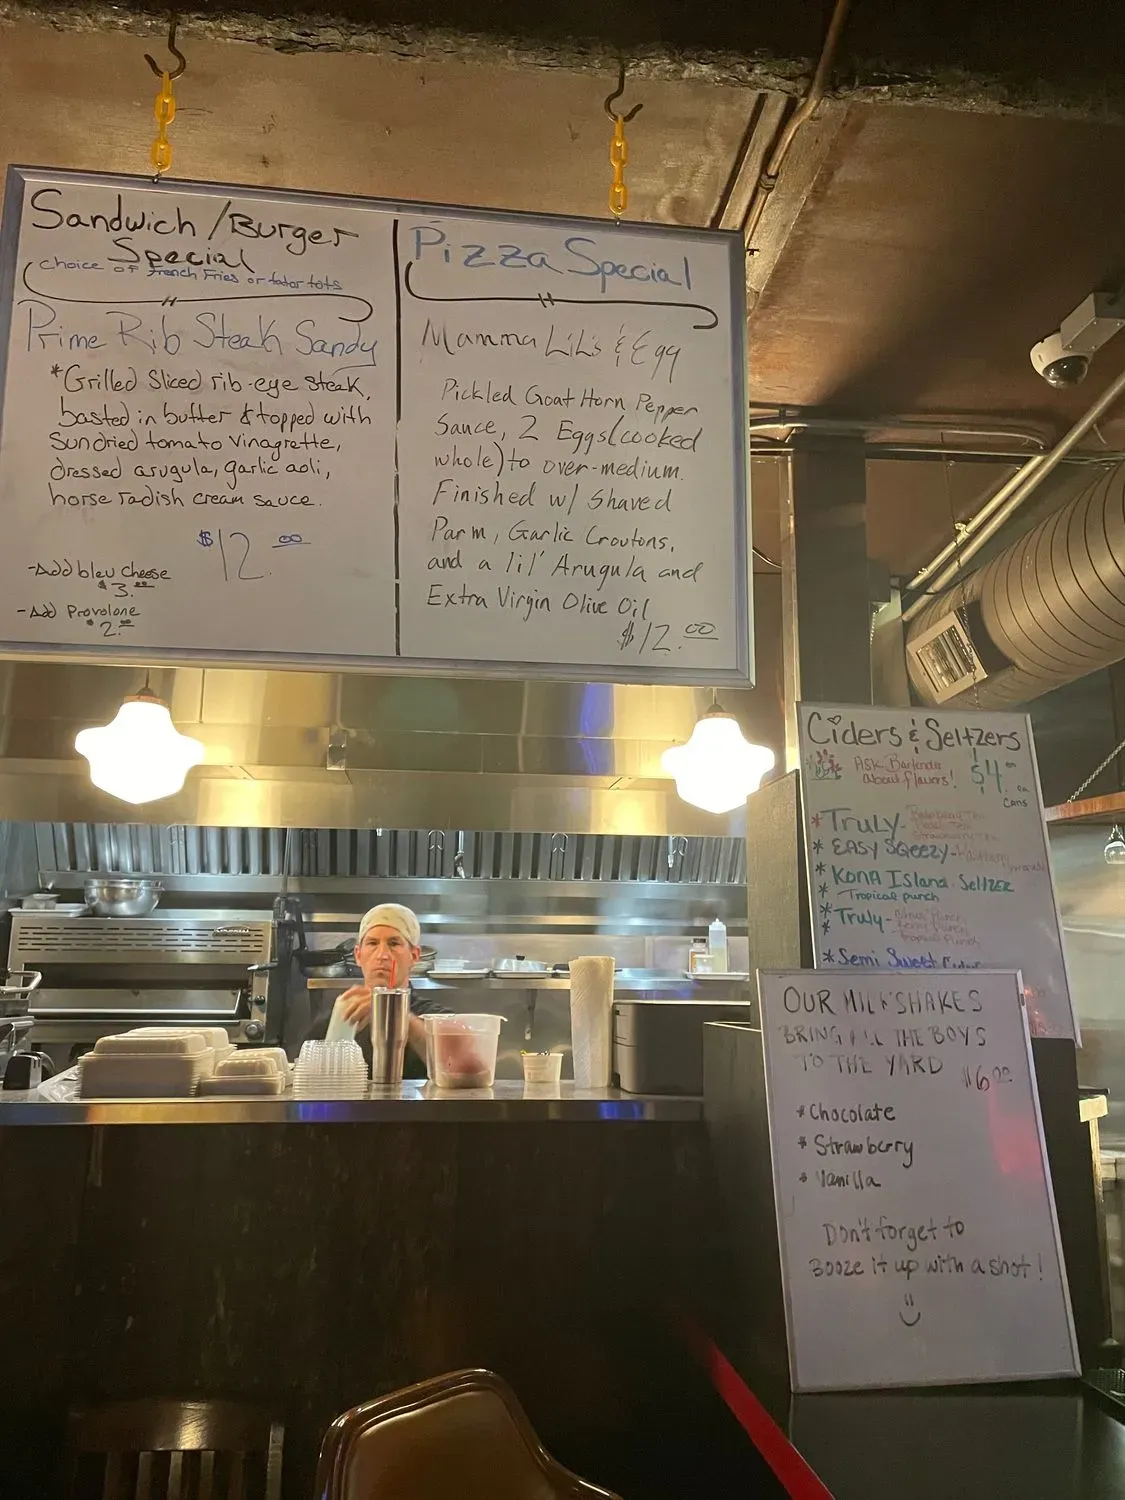 Sandwich/Burger
Special
choice of French Fries or tator tots
Prime Rib Steak Sandy
*Grilled Sliced rib-eye steak,
basted in butter & topped with
Sundried tomato vinagrette,
dressed arugula, garlic aoli,
horse radish cream sauce.
$12.00
-Add bleu Cheese
$3.00
-Add Provolone
$2.00
Pizza Special
Mamma LiL's & Egg
Pickled Goat Horn Pepper
Sauce, 2 Eggs (cooked
whole) to over-medium.
Finished w/ Shaved
Parm, Garlic Croutons,
and a lil' Arugula and
Extra Virgin Olive Oil
$12.00
Ciders & Seltzers
ASK Bartender
about flavors!
$4.00 ea
Cans
*TRULY-
Strawberry Tea
*EASY SQeezy-
*KONA Island Seltzer
Tropical punch
*Truly-
Berry Punch
Tropical Punch
*Semi Sweet Cider
OUR MILKSHAKES
BRING ALL THE BOYS
TO THE YARD
$6.00
*Chocolate
*Strawberry
*Vanilla
Don't forget to
Booze it up with a shot!